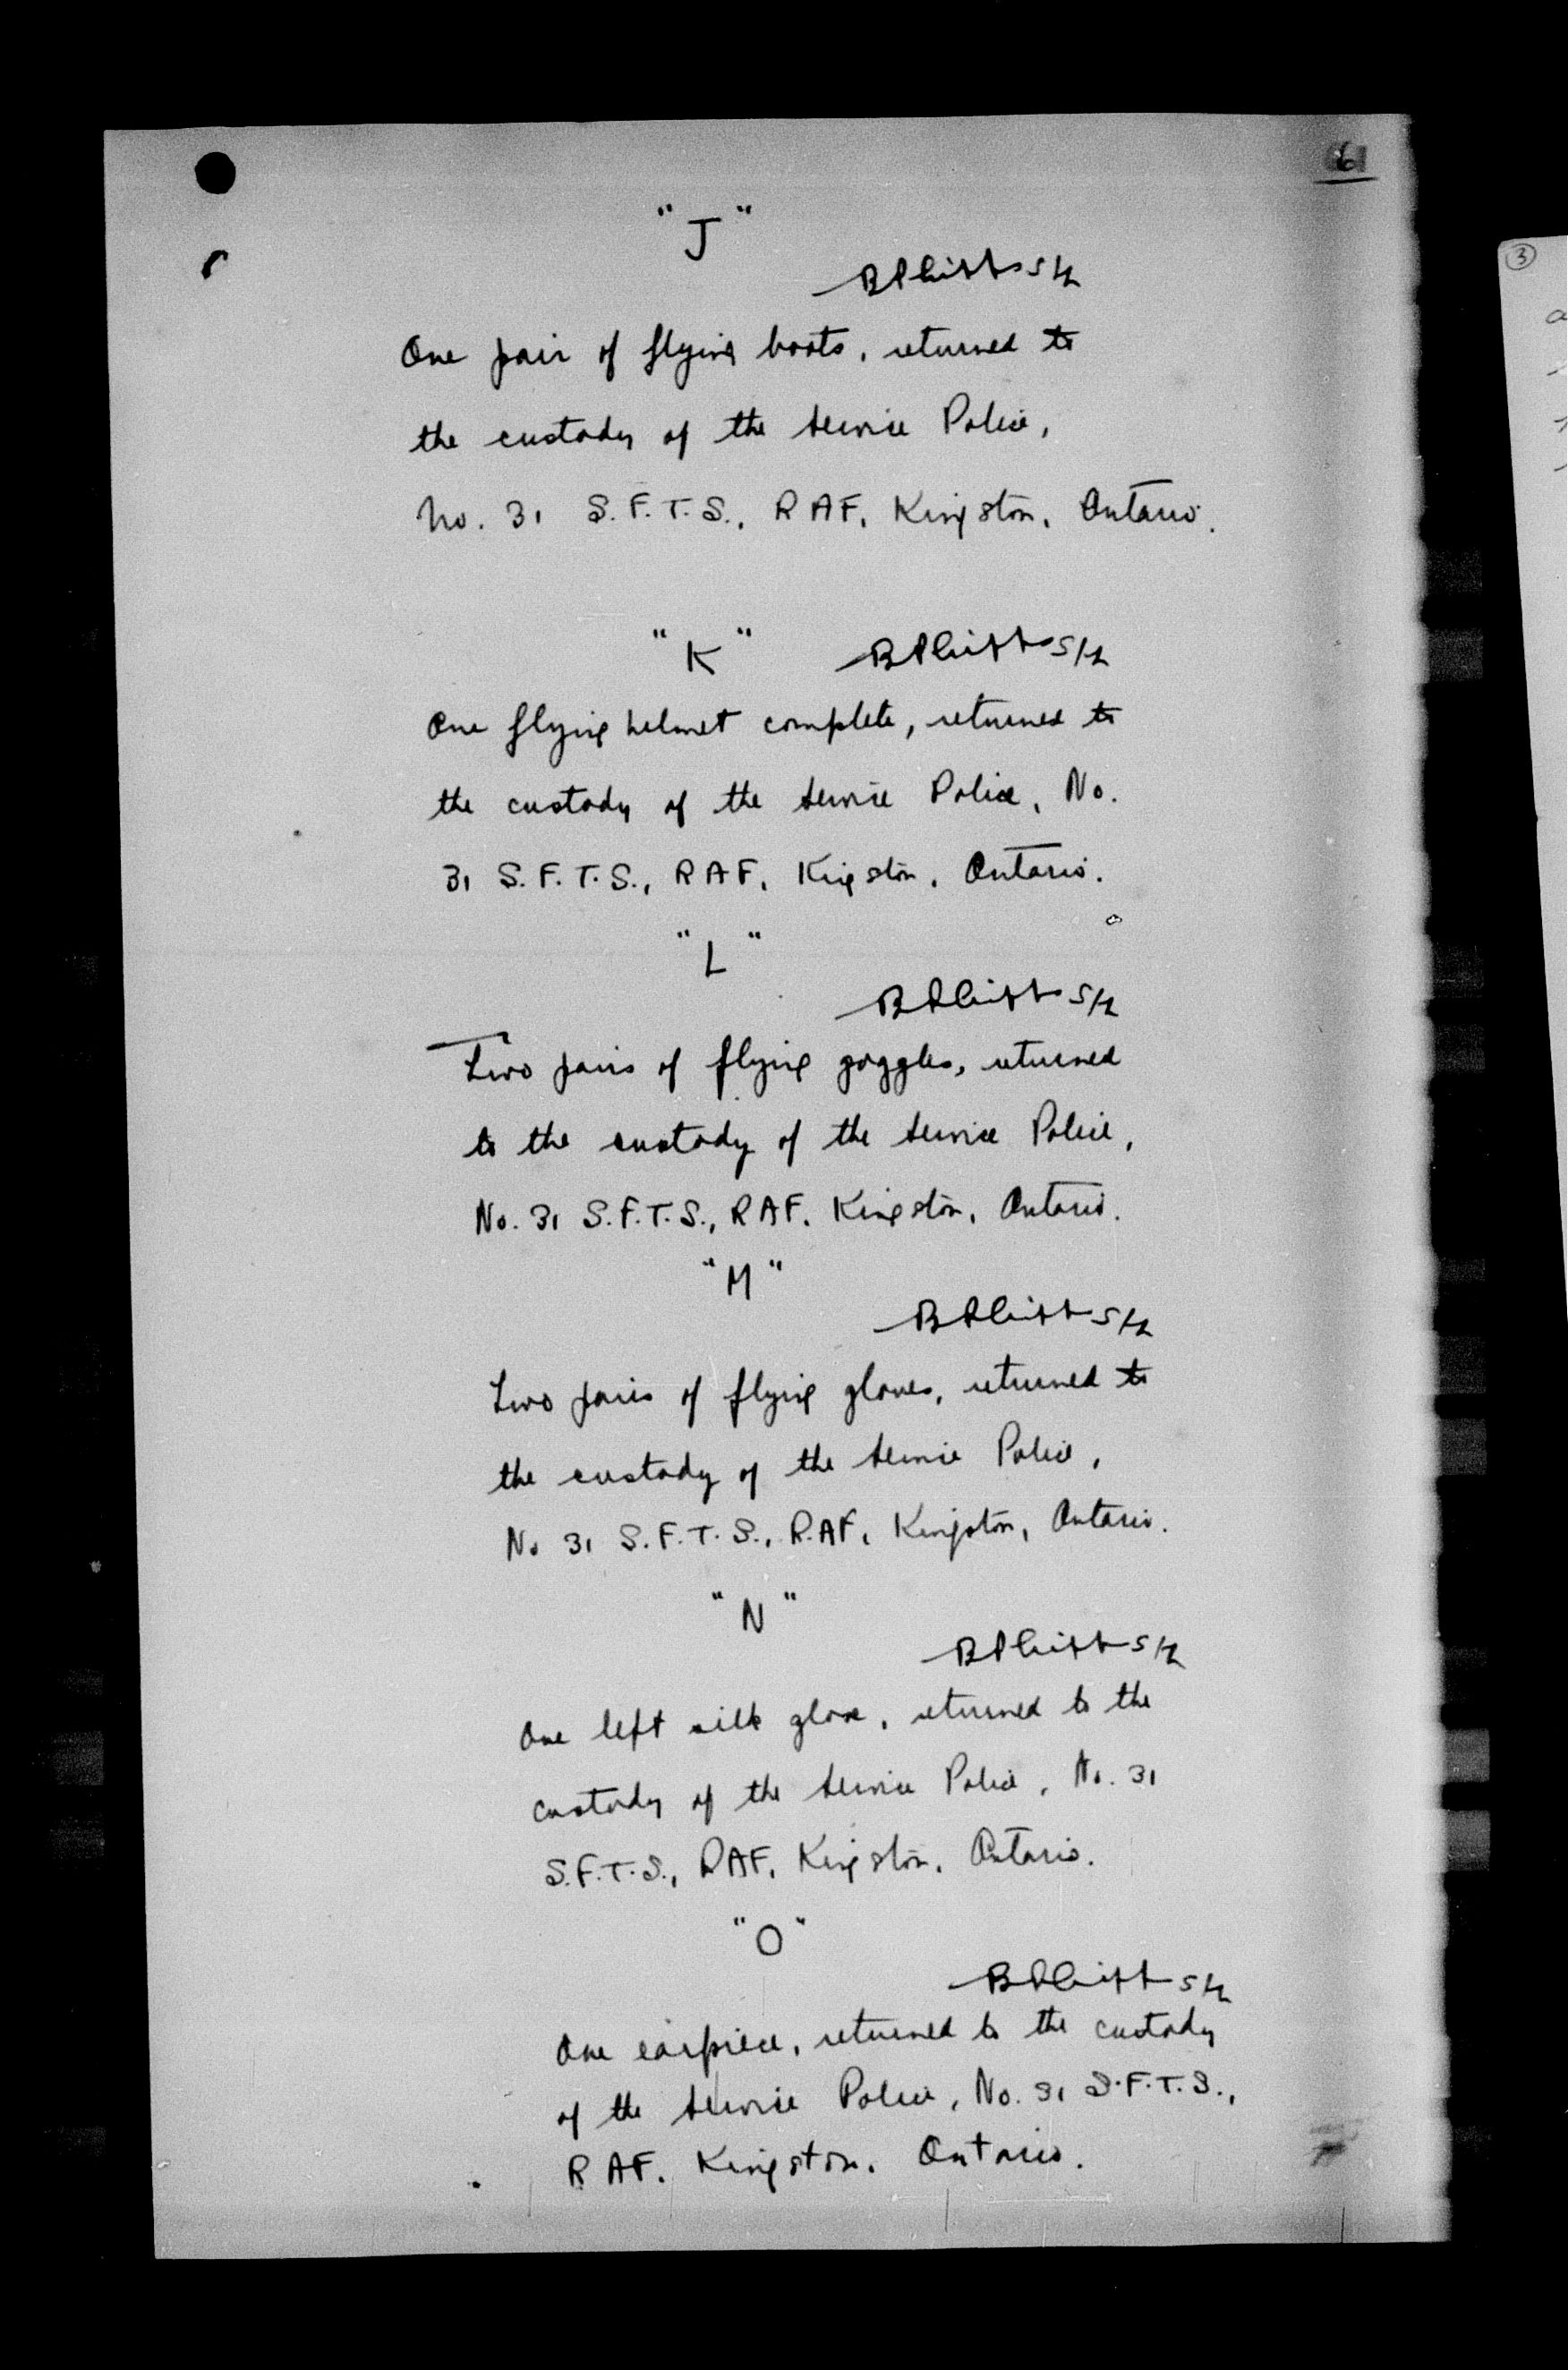 6
"J"
S/L
One pair of flying boots, returned to
the custody of the Service Police,
No. 31 S.F.T.S., RAF, Kingston, Ontario.
"K" S/L
One flying helmet complete, returned to
the custody of the Service Police, No.
31 S.F.T.S., RAF, Kingston, Ontario.
"L"
S/L
Two pairs of flying goggles, returned
to the custody of the Service Police,
No. 31 S.F.T.S., RAF, Kingston, Ontario.
"M"
S/L
Two pairs of flying gloves, returned to
the custody of the Service Police,
No 31 S.F.T.S., R.AF, Kingston, Ontario.
"N"
S/L
One left silk glove, returned to the
custody of the Service Police, No. 31
S.F.T.S., RAF, Kingston, Ontario.
"O"
S/L
One earpiece, returned to the custody
of the Service Police, No. 31 S.F.T.S.,
RAF. Kingston. Ontario.
3